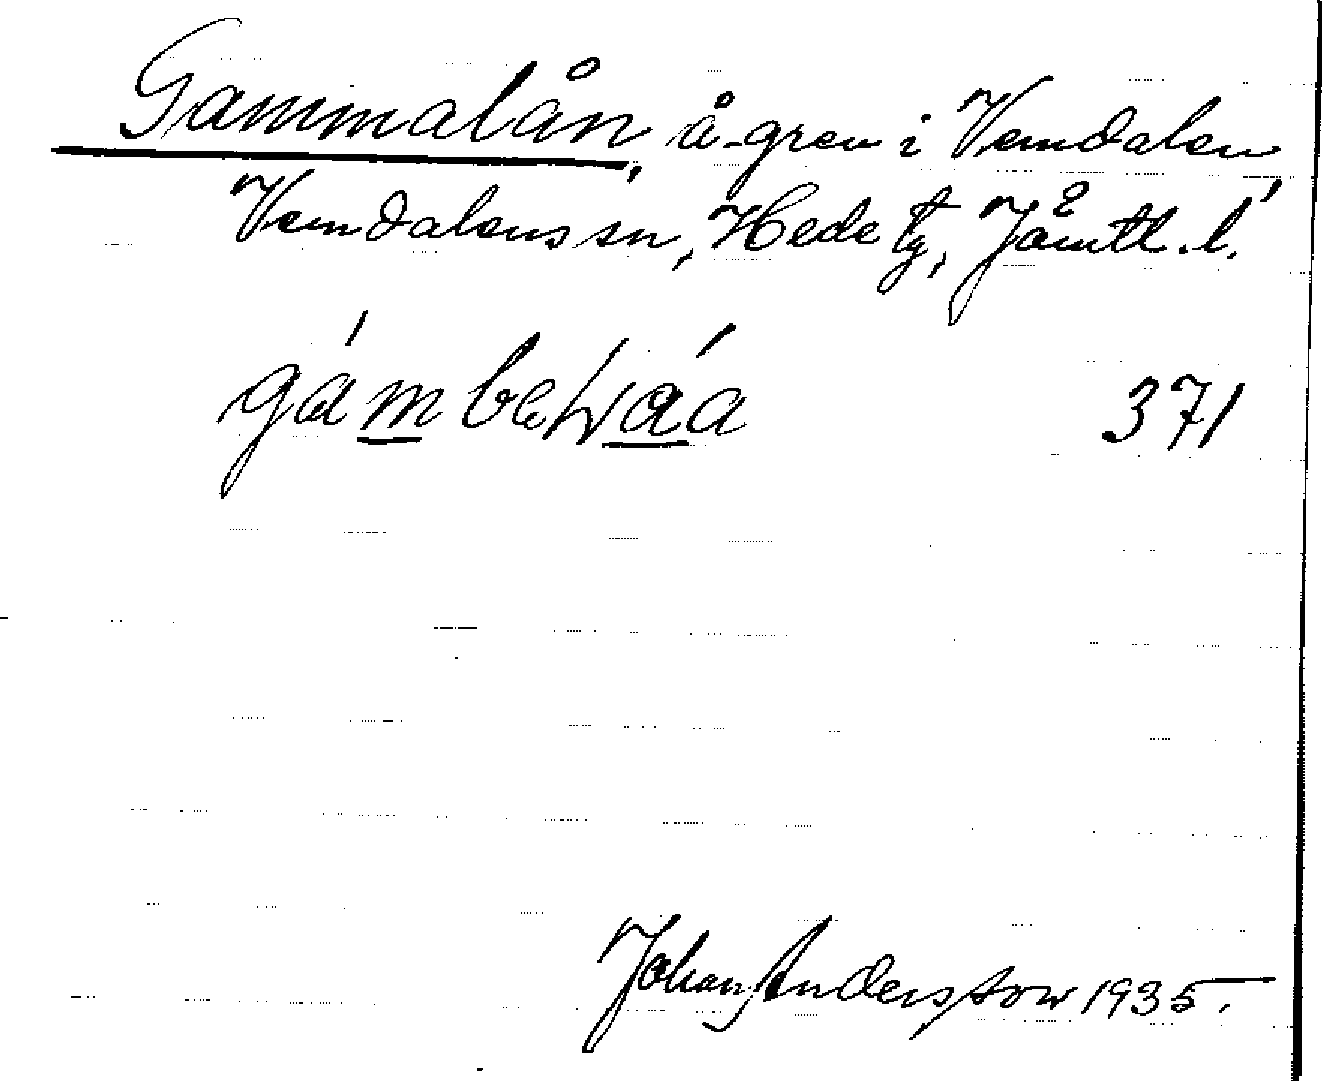 Gammalån, å-gren i Vemdalen,
Vemdalens sn, Hede tg, Jämtl. l.
371
Johan Anderston 1935.